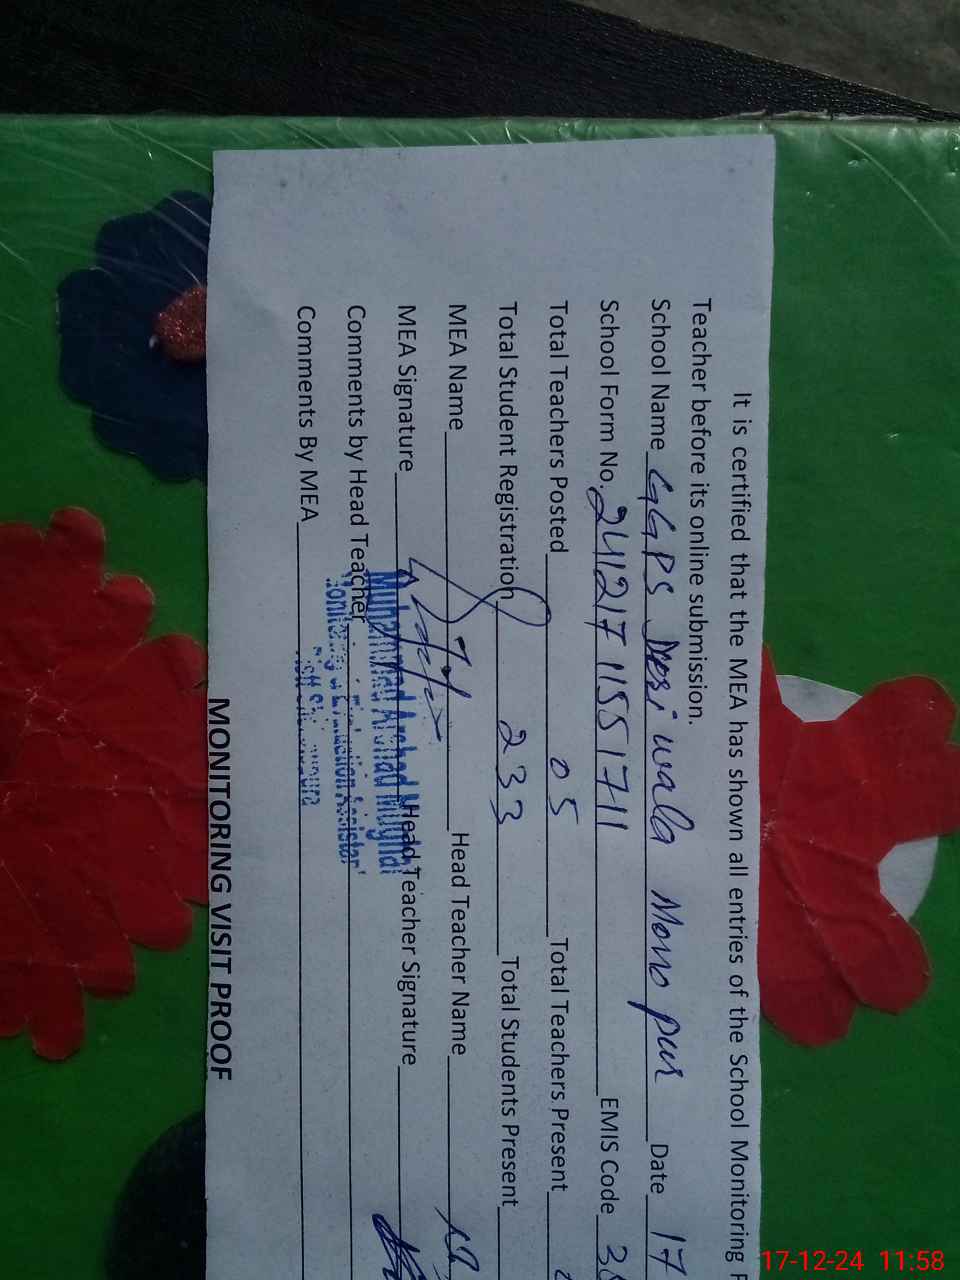 It is certified that the MEA has shown all entries of the School Monitoring
Teacher before its online submission.
School Name GGPS Desi wala Momo pur Date 17
School Form No. 24121711551711 EMIS Code 3
Total Teachers Posted 05 Total Teachers Present
Total Student Registration 233 Total Students Present
MEA Name Head Teacher Name
MEA Signature Head Teacher Signature
Muhammad Arshad Mughal
Comments by Head Teacher
Monitoring & Evaluation Assistant
Comments By MEA
MONITORING VISIT PROOF
17-12-24 11:58